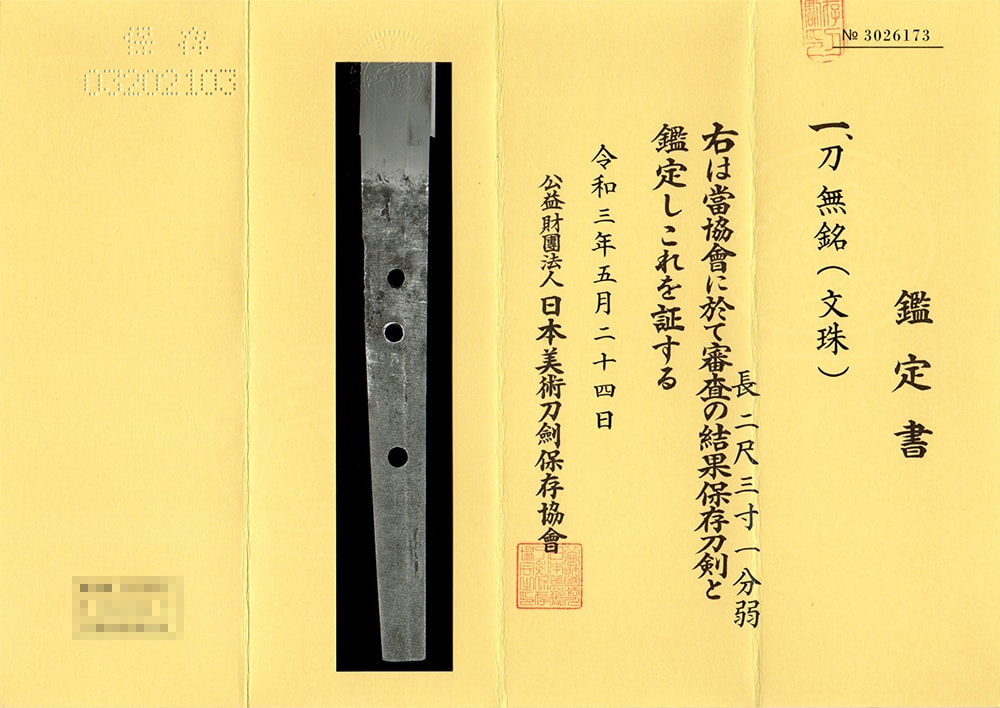 № 3026173
鑑定書
一、刀 無銘(文珠)
長二尺三寸一分弱
右は當協會に於て審査の結果保存刀剣と
鑑定しこれを証する
令和三年五月二十四日
公益財團法人 日本美術刀劍保存協會
保存
03202103